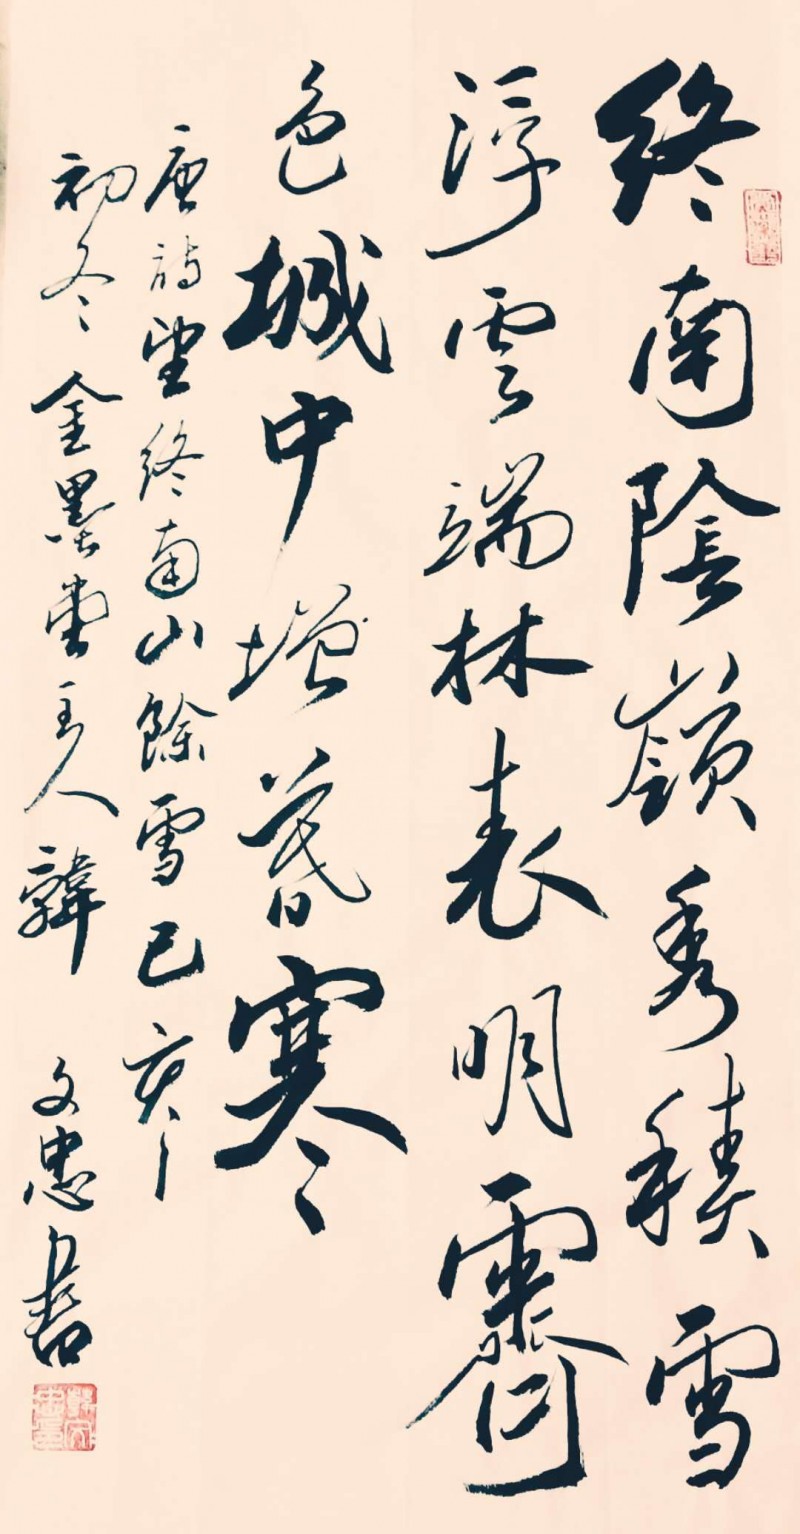 終南陰嶺秀積雪
浮雲端林表明霽
色城中增暮寒
唐詩望終南山餘雪己亥
初冬金墨堂主人韓文忠書